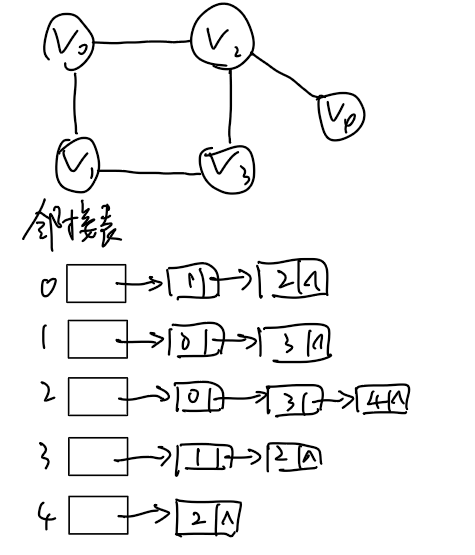 V0 V2
Vp
V1 V3
邻接表
0 1 2 ∧
1 0 3 ∧
2 0 3 4 ∧
3 1 2 ∧
4 2 ∧